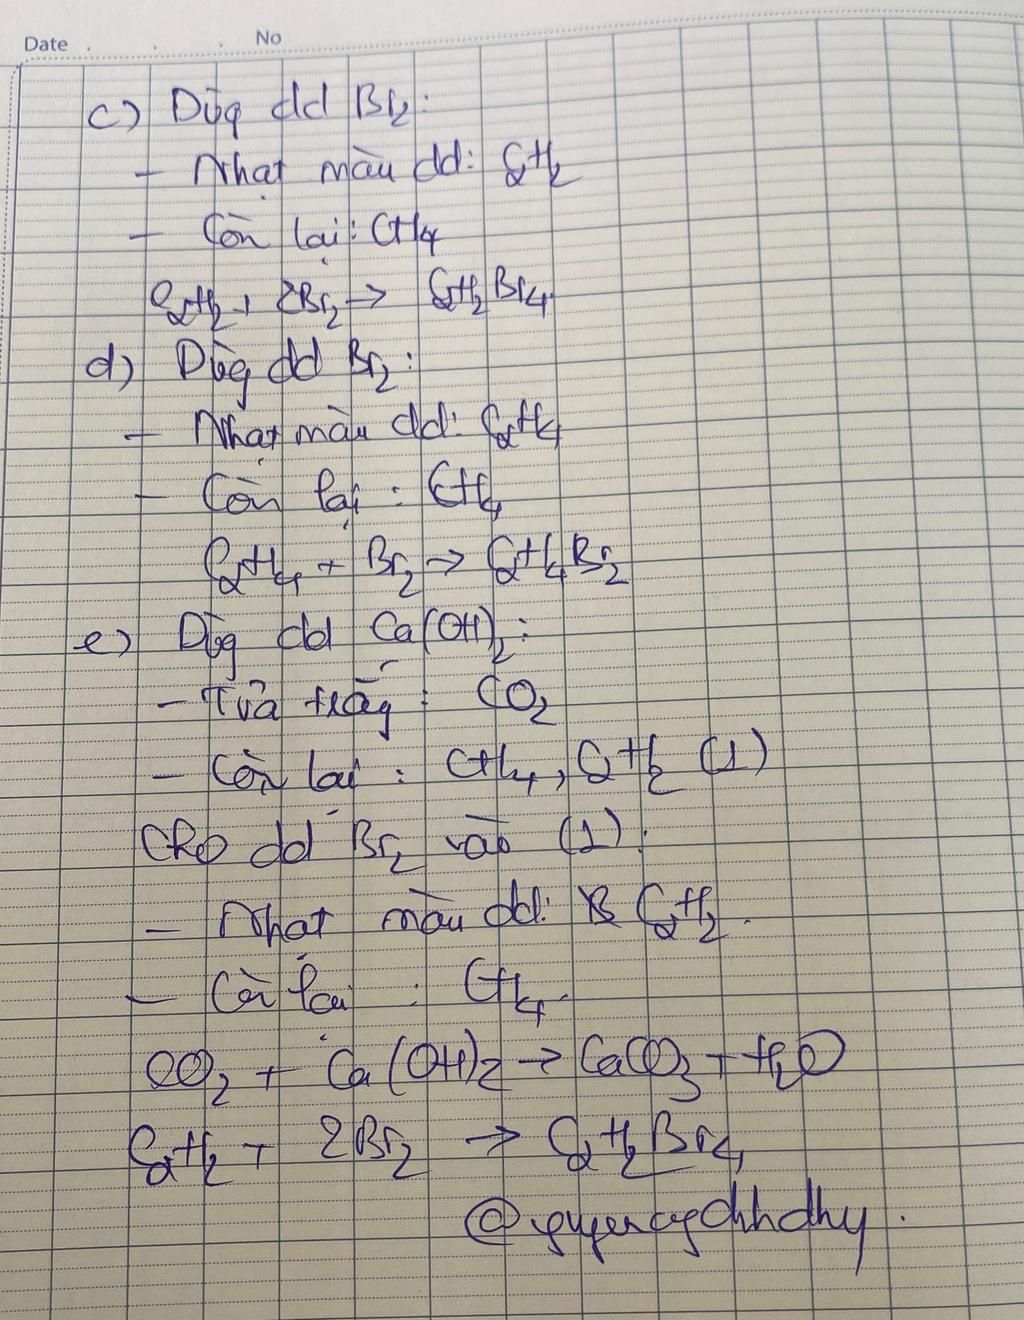 Date No
c) Dùg dd Br₂:
- Nhạt màu dd: C₂H₂
- Còn lại: CH₄
C₂H₂ + 2Br₂ → C₂H₂Br₄
d) Dùg dd Br₂:
- Nhạt màu dd: C₂H₄
- Còn lại: CH₄
C₂H₄ + Br₂ → C₂H₄Br₂
e) Dùg dd Ca(OH)₂:
- Tủa trắg: CO₂
- Còn lại: CH₄, C₂H₂ (1)
Cho dd Br₂ vào (1):
- Nhạt màu dd: C₂H₂.
- Còn lại: CH₄.
CO₂ + Ca(OH)₂ → CaCO₃ + H₂O
C₂H₂ + 2Br₂ → C₂H₂Br₄